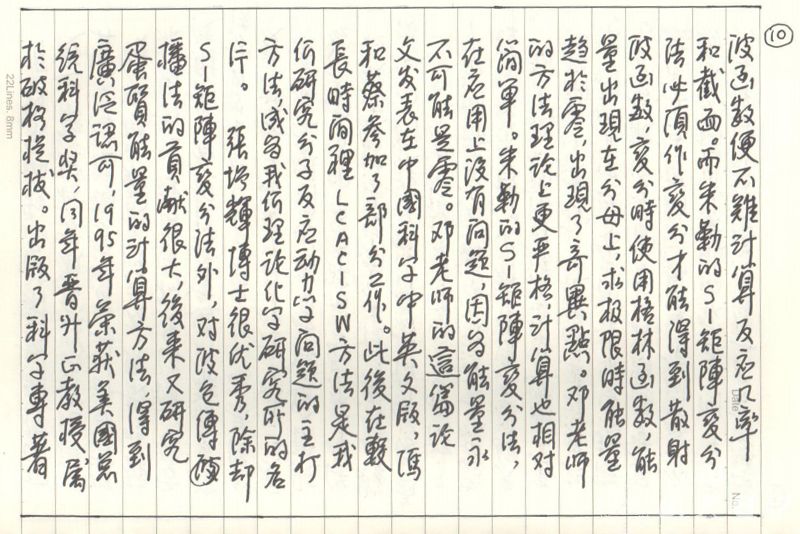 ⑩
波函数便不難計算反应几率
和截面。而朱勳的S-矩陣变分
法必須作变分才能得到散射
波函数，变分時使用格林函数，能
量出現在分母上，求极限時能量
趋於零，出現了奇異點。邓老師
的方法理论上更严格，计算也相对
简单。朱勳的S-矩陣变分法，
在应用上没有問題，因为能量永
不可能是零。邓老師的這篇论
文发表在中國科学中英文版，馮
和蔡参加了部分工作。此後在較
長時间裡LCACISW方法是我
们研究分子反应动力学问题的主打
方法，成为我们理论化学研究所的名
片。張增輝博士很优秀，除却
S-矩陣变分法外，对波包傳
播法的貢献很大，後来又研究
蛋質能量的计算方法，得到
廣泛認可，1995年荣获美國总
统科学奖，同年晋升正教授，属
於破格提拔。出版了科学專著
22Lines, 8mm
Date
No.